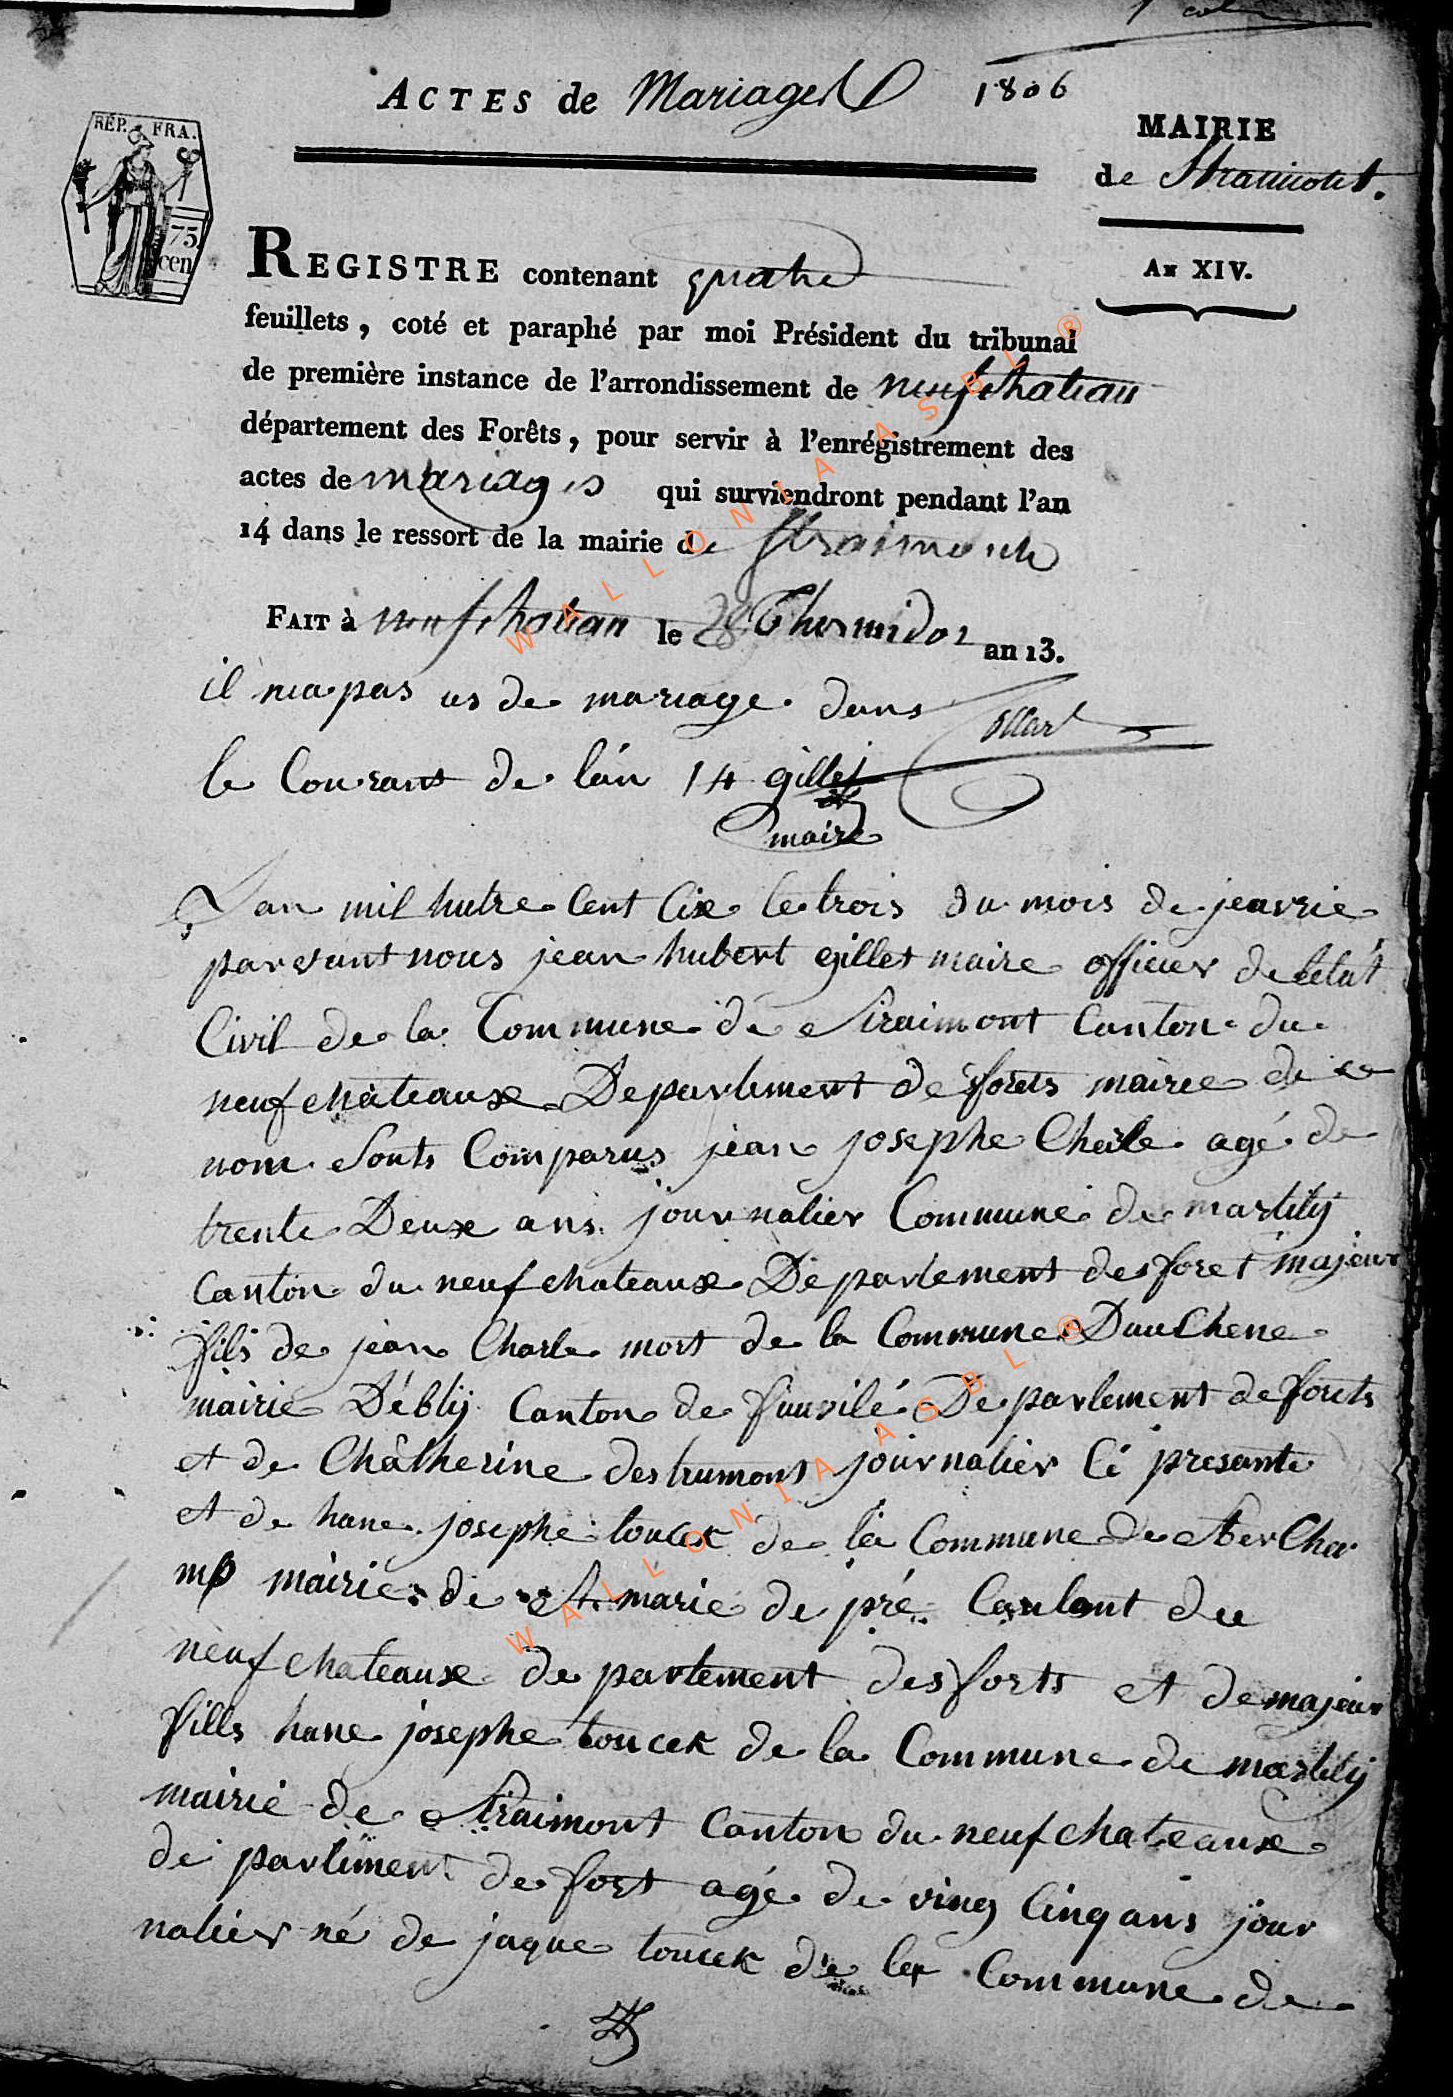 1806
ACTES de Mariages
MAIRIE
de Straimont.
AN XIV.
RÉP. FRA.
75 cen
REGISTRE contenant quatre
feuillets, coté et paraphé par moi Président du tribunal
de première instance de l'arrondissement de neufchateau
département des Forêts, pour servir à l'enrégistrement des
actes de mariages qui surviendront pendant l'an
14 dans le ressort de la mairie de Straimont
FAIT à neufchateau le 28 Thermidor an 13.
il nia pas us de mariage dans
Collart
le Courant de lan 14 gillet
maire
Lan mil hutre Cent Cix le trois du mois de jeavrie
parevant nous jean hubert gillet maire officier de letat
Civil de la Commune de Straimont Canton du
neufchateaux Departement de forets mairee de ce
nom Sonts Comparus jean josephe Charle agé de
trente Deux ans journalier Commune de martily
Canton du neufchateaux Departement des foret majeur
fils de jean Charle mort de la Commune Dauchene
mairie Débly Canton de fauvilé Departement de forets
et de Chatherine destrumont journalier Ci presante
et de hane josephe toucek de la Commune de Nevercha
mp mairie de St marie de pré Caulont du
neufchateaux departement des forts et de majeur
fills hane josephe toucek de la Commune de martily
mairie de Straimont Canton du neufchateaux
de partement de fort agé de ving Cinq ans jour
nalier né de jaque toucek de la Commune de
WALLONIA ASBL ®
WALLONIA ASBL ®